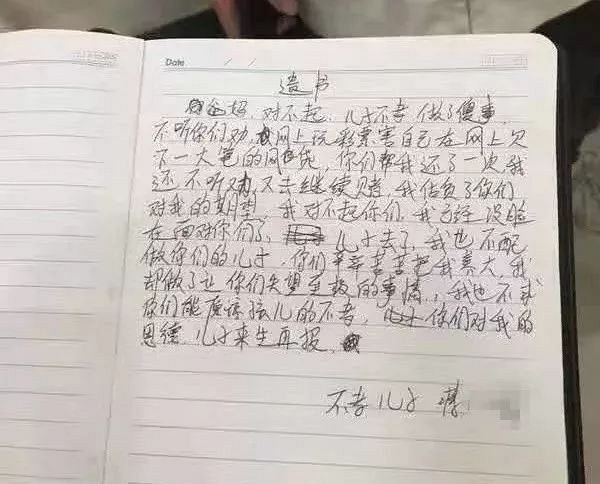 Date / /
遗书
爸妈 对不起,儿子不孝 做了傻事,
不听你们劝,网上玩彩票害自己在网上欠
下一大笔的网贷,你们帮我还了一次,我
还不听劝,又去继续赌,我辜负了你们
对我的期望,我对不起你们,我没脸
在面对你们了,儿子去了,我也不配
做你们的儿子,你们辛辛苦苦把我养大,我
却做了让你们失望至极的事情,我也不求
你们能原谅孩儿的不孝,你们对我的
恩德 儿子来生再报,
不孝儿子